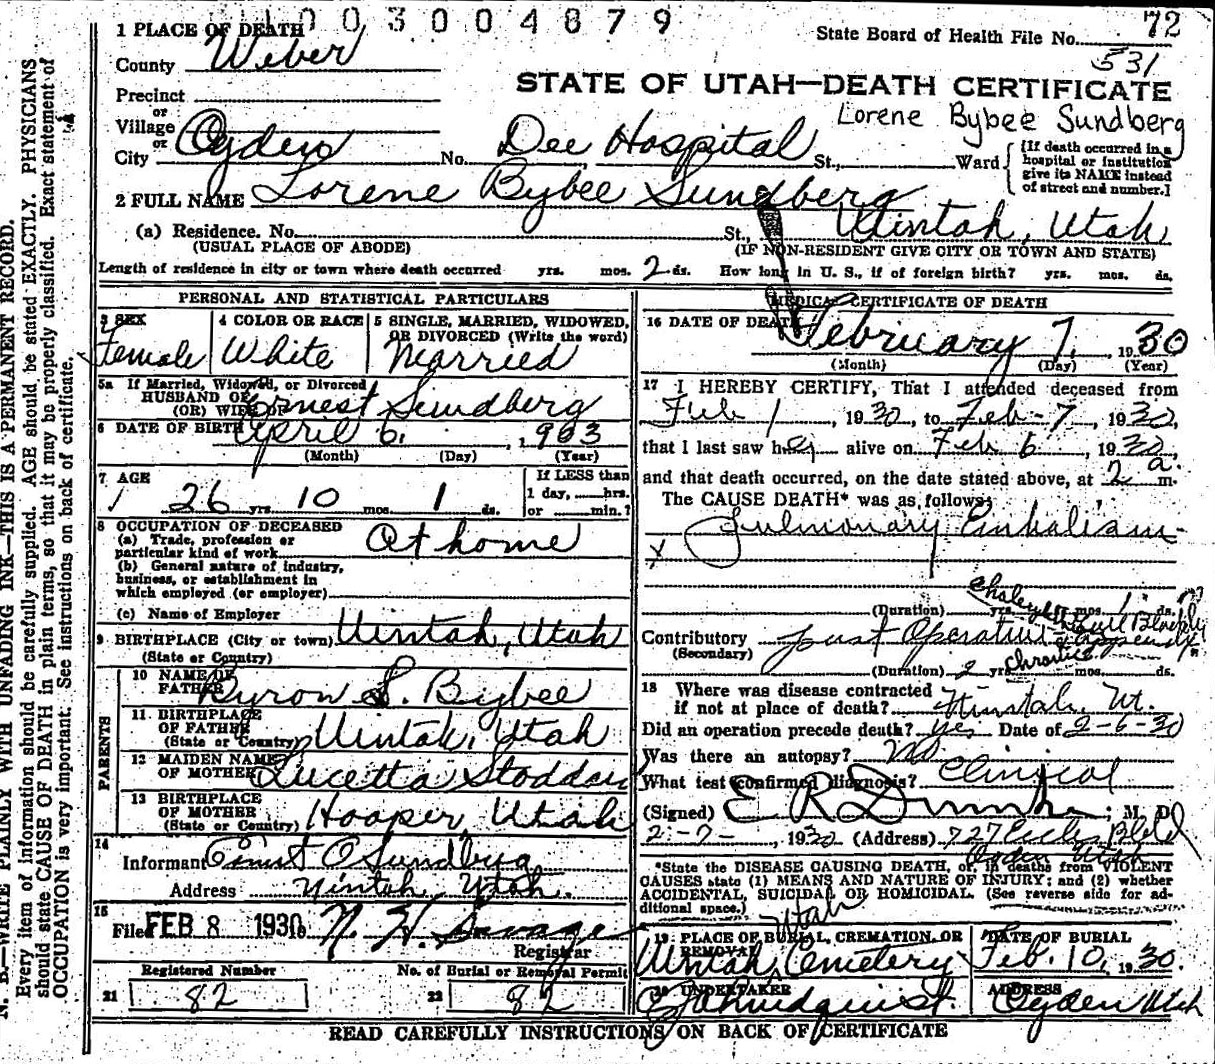 1003004879
1 PLACE OF DEATH
State Board of Health File No. 72
531
County Weber
STATE OF UTAH—DEATH CERTIFICATE
Precinct
or
Lorene Bybee Sundberg
Village
or
City Ogden No. Dee Hospital St., Ward
[If death occurred in a hospital or institution give its NAME instead of street and number.]
2 FULL NAME Lorene Bybee Sundberg
(a) Residence. No. St., Uintah, Utah
(USUAL PLACE OF ABODE) (IF NON-RESIDENT GIVE CITY OR TOWN AND STATE)
Length of residence in city or town where death occurred yrs. mos. 2 ds. How long in U. S., if of foreign birth? yrs. mos. ds.
PERSONAL AND STATISTICAL PARTICULARS
3 SEX 4 COLOR OR RACE 5 SINGLE, MARRIED, WIDOWED,
OR DIVORCED (Write the word)
Female White Married
5a If Married, Widowed, or Divorced
HUSBAND OF
(OR) WIFE OF Ernest Sundberg
6 DATE OF BIRTH April 6, 1903
(Month) (Day) (Year)
7 AGE If LESS than
26 yrs. 10 mos. 1 ds. 1 day, hrs.
or min.?
8 OCCUPATION OF DECEASED
(a) Trade, profession or
particular kind of work At home
(b) General nature of industry,
business, or establishment in
which employed (or employer)
(c) Name of Employer
9 BIRTHPLACE (City or town) Uintah, Utah
(State or Country)
PARENTS
10 NAME OF
FATHER Byron S. Bybee
11 BIRTHPLACE
OF FATHER
(State or Country) Uintah, Utah
12 MAIDEN NAME
OF MOTHER Lucetta
13 BIRTHPLACE
OF MOTHER
(State or Country) Hooper, Utah
14
Informant Ernest O Sundberg
Address Uintah Utah.
15
Filed FEB 8 1930 N. H. Savage
Registrar
Registered Number No. of Burial or Removal Permit
21 82 22 82
MEDICAL CERTIFICATE OF DEATH
16 DATE OF DEATH February 7, 1930
(Month) (Day) (Year)
17 I HEREBY CERTIFY, That I attended deceased from
Feb 1, 1930, to Feb-7, 1930,
that I last saw her alive on Feb 6, 1930,
and that death occurred, on the date stated above, at 2 a. m.
The CAUSE DEATH* was as follows:
Pulmonary Embolism
x
(Duration) yrs. mos. 1 ds.
Contributory Post Operative
(Secondary)
Chronic
(Duration) 2 yrs. mos. ds.
18 Where was disease contracted
if not at place of death? Uintah, Ut.
Did an operation precede death? yes Date of 2-6-30
Was there an autopsy? No
What test confirmed diagnosis? Clinical
(Signed) E R ; M. D.
2-7-, 1930 (Address) 727 Eccles Bld
Ogden Utah
*State the DISEASE CAUSING DEATH, or, in deaths from VIOLENT
CAUSES state (1) MEANS AND NATURE OF INJURY; and (2) whether
ACCIDENTAL, SUICIDAL OR HOMICIDAL. (See reverse side for ad-
ditional space.)
19 PLACE OF BURIAL, CREMATION, OR
REMOVAL
DATE OF BURIAL
Utah
Uintah Cemetery Feb. 10, 1930.
20 UNDERTAKER ADDRESS
Ogden Utah
READ CAREFULLY INSTRUCTIONS ON BACK OF CERTIFICATE
N. B.—WRITE PLAINLY WITH UNFADING INK—THIS IS A PERMANENT RECORD.
Every item of information should be carefully supplied. AGE should be stated EXACTLY. PHYSICIANS
should state CAUSE OF DEATH in plain terms, so that it may be properly classified. Exact statement of
OCCUPATION is very important. See instructions on back of certificate.